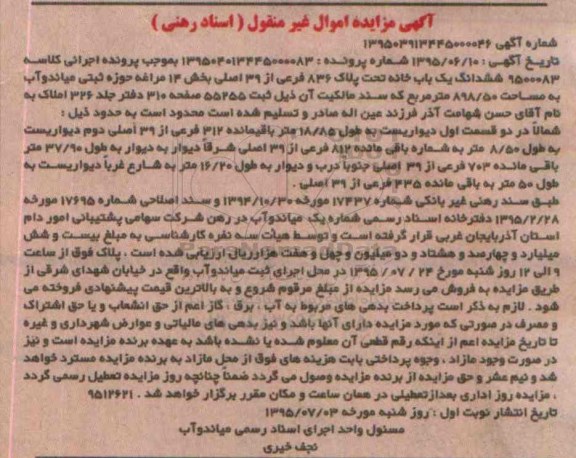 آگهی مزایده اموال غیر منقول ( اسناد رهنی )
شماره آگهی ۱۳۹۵۰۳۹۱۳۴۴۵۰۰۰۰۴۶
تاریخ آگهی : ۱۳۹۵/۰۶/۱۰ شماره پرونده : ۱۳۹۵۰۴۰۱۳۴۴۵۰۰۰۰۸۳ بموجب پرونده اجرائی کلاسه
۹۵۰۰۰۸۳ ششدانگ یک باب خانه تحت پلاک ۸۳۶ فرعی از ۳۹ اصلی بخش ۱۴ مراغه حوزه ثبتی میاندوآب
به مساحت ۸۹۸/۵۰ مترمربع که سند مالکیت آن ذیل ثبت ۵۵۲۵۵ صفحه ۳۱۰ دفتر جلد ۳۲۶ املاک به
نام آقای حسن شهامت آذر فرزند عین اله صادر و تسلیم شده است محدود است به حدود ذیل :
شمالاً در دو قسمت اول دیواریست به طول ۱۸/۸۵ متر باقیمانده ۳۱۲ فرعی از ۳۹ اصلی دوم دیواریست
به طول ۸/۵۰ متر به شماره باقی مانده ۸۱۲ فرعی از ۳۹ اصلی شرقاً دیوار به دیوار به طول ۳۷/۹۰ متر
باقی مانده ۷۰۳ فرعی از ۳۹ اصلی جنوباً درب و دیوار به طول ۱۶/۲۰ متر به شارع غرباً دیواریست به
طول ۵۰ متر به باقی مانده ۳۳۵ فرعی از ۳۹ اصلی .
طبق سند رهنی غیر بانکی شماره ۱۷۴۳۷ مورخه ۱۳۹۴/۱۰/۳۰ و سند اصلاحی شماره ۱۷۶۹۵ مورخه
۱۳۹۵/۲/۲۸ دفترخانه اسناد رسمی شماره یک میاندوآب در رهن شرکت سهامی پشتیبانی امور دام
استان آذربایجان غربی قرار گرفته است و توسط هیأت سه نفره کارشناسی به مبلغ بیست و شش
میلیارد و چهارصد و هشتاد و دو میلیون و چهل و هفت هزارریال ارزیابی شده است . پلاک فوق از ساعت
۹ الی ۱۲ روز شنبه مورخ ۲۴ / ۰۷ / ۱۳۹۵ در محل اجرای ثبت میاندوآب واقع در خیابان شهدای شرقی از
طریق مزایده به فروش می رسد مزایده از مبلغ مرقوم شروع و به بالاترین قیمت پیشنهادی فروخته می
شود . لازم به ذکر است پرداخت بدهی های مربوط به آب ، برق ، گاز اعم از حق انشعاب و یا حق اشتراک
و مصرف در صورتی که مورد مزایده دارای آنها باشد و نیز بدهی های مالیاتی و عوارض شهرداری و غیره
تا تاریخ مزایده اعم از اینکه رقم قطعی آن معلوم شده یا نشده باشد به عهده برنده مزایده است و نیز
در صورت وجود مازاد ، وجوه پرداختی بابت هزینه های فوق از محل مازاد به برنده مزایده مسترد خواهد
شد و نیم عشر و حق مزایده از برنده مزایده وصول می گردد ضمناً چنانچه روز مزایده تعطیل رسمی گردد
، مزایده روز اداری بعدازتعطیلی در همان ساعت و مکان مقرر برگزار خواهد شد . ۹۵۱۲۶۲۱
تاریخ انتشار نوبت اول : روز شنبه مورخه ۱۳۹۵/۰۷/۰۳
مسئول واحد اجرای اسناد رسمی میاندوآب
نجف خیری